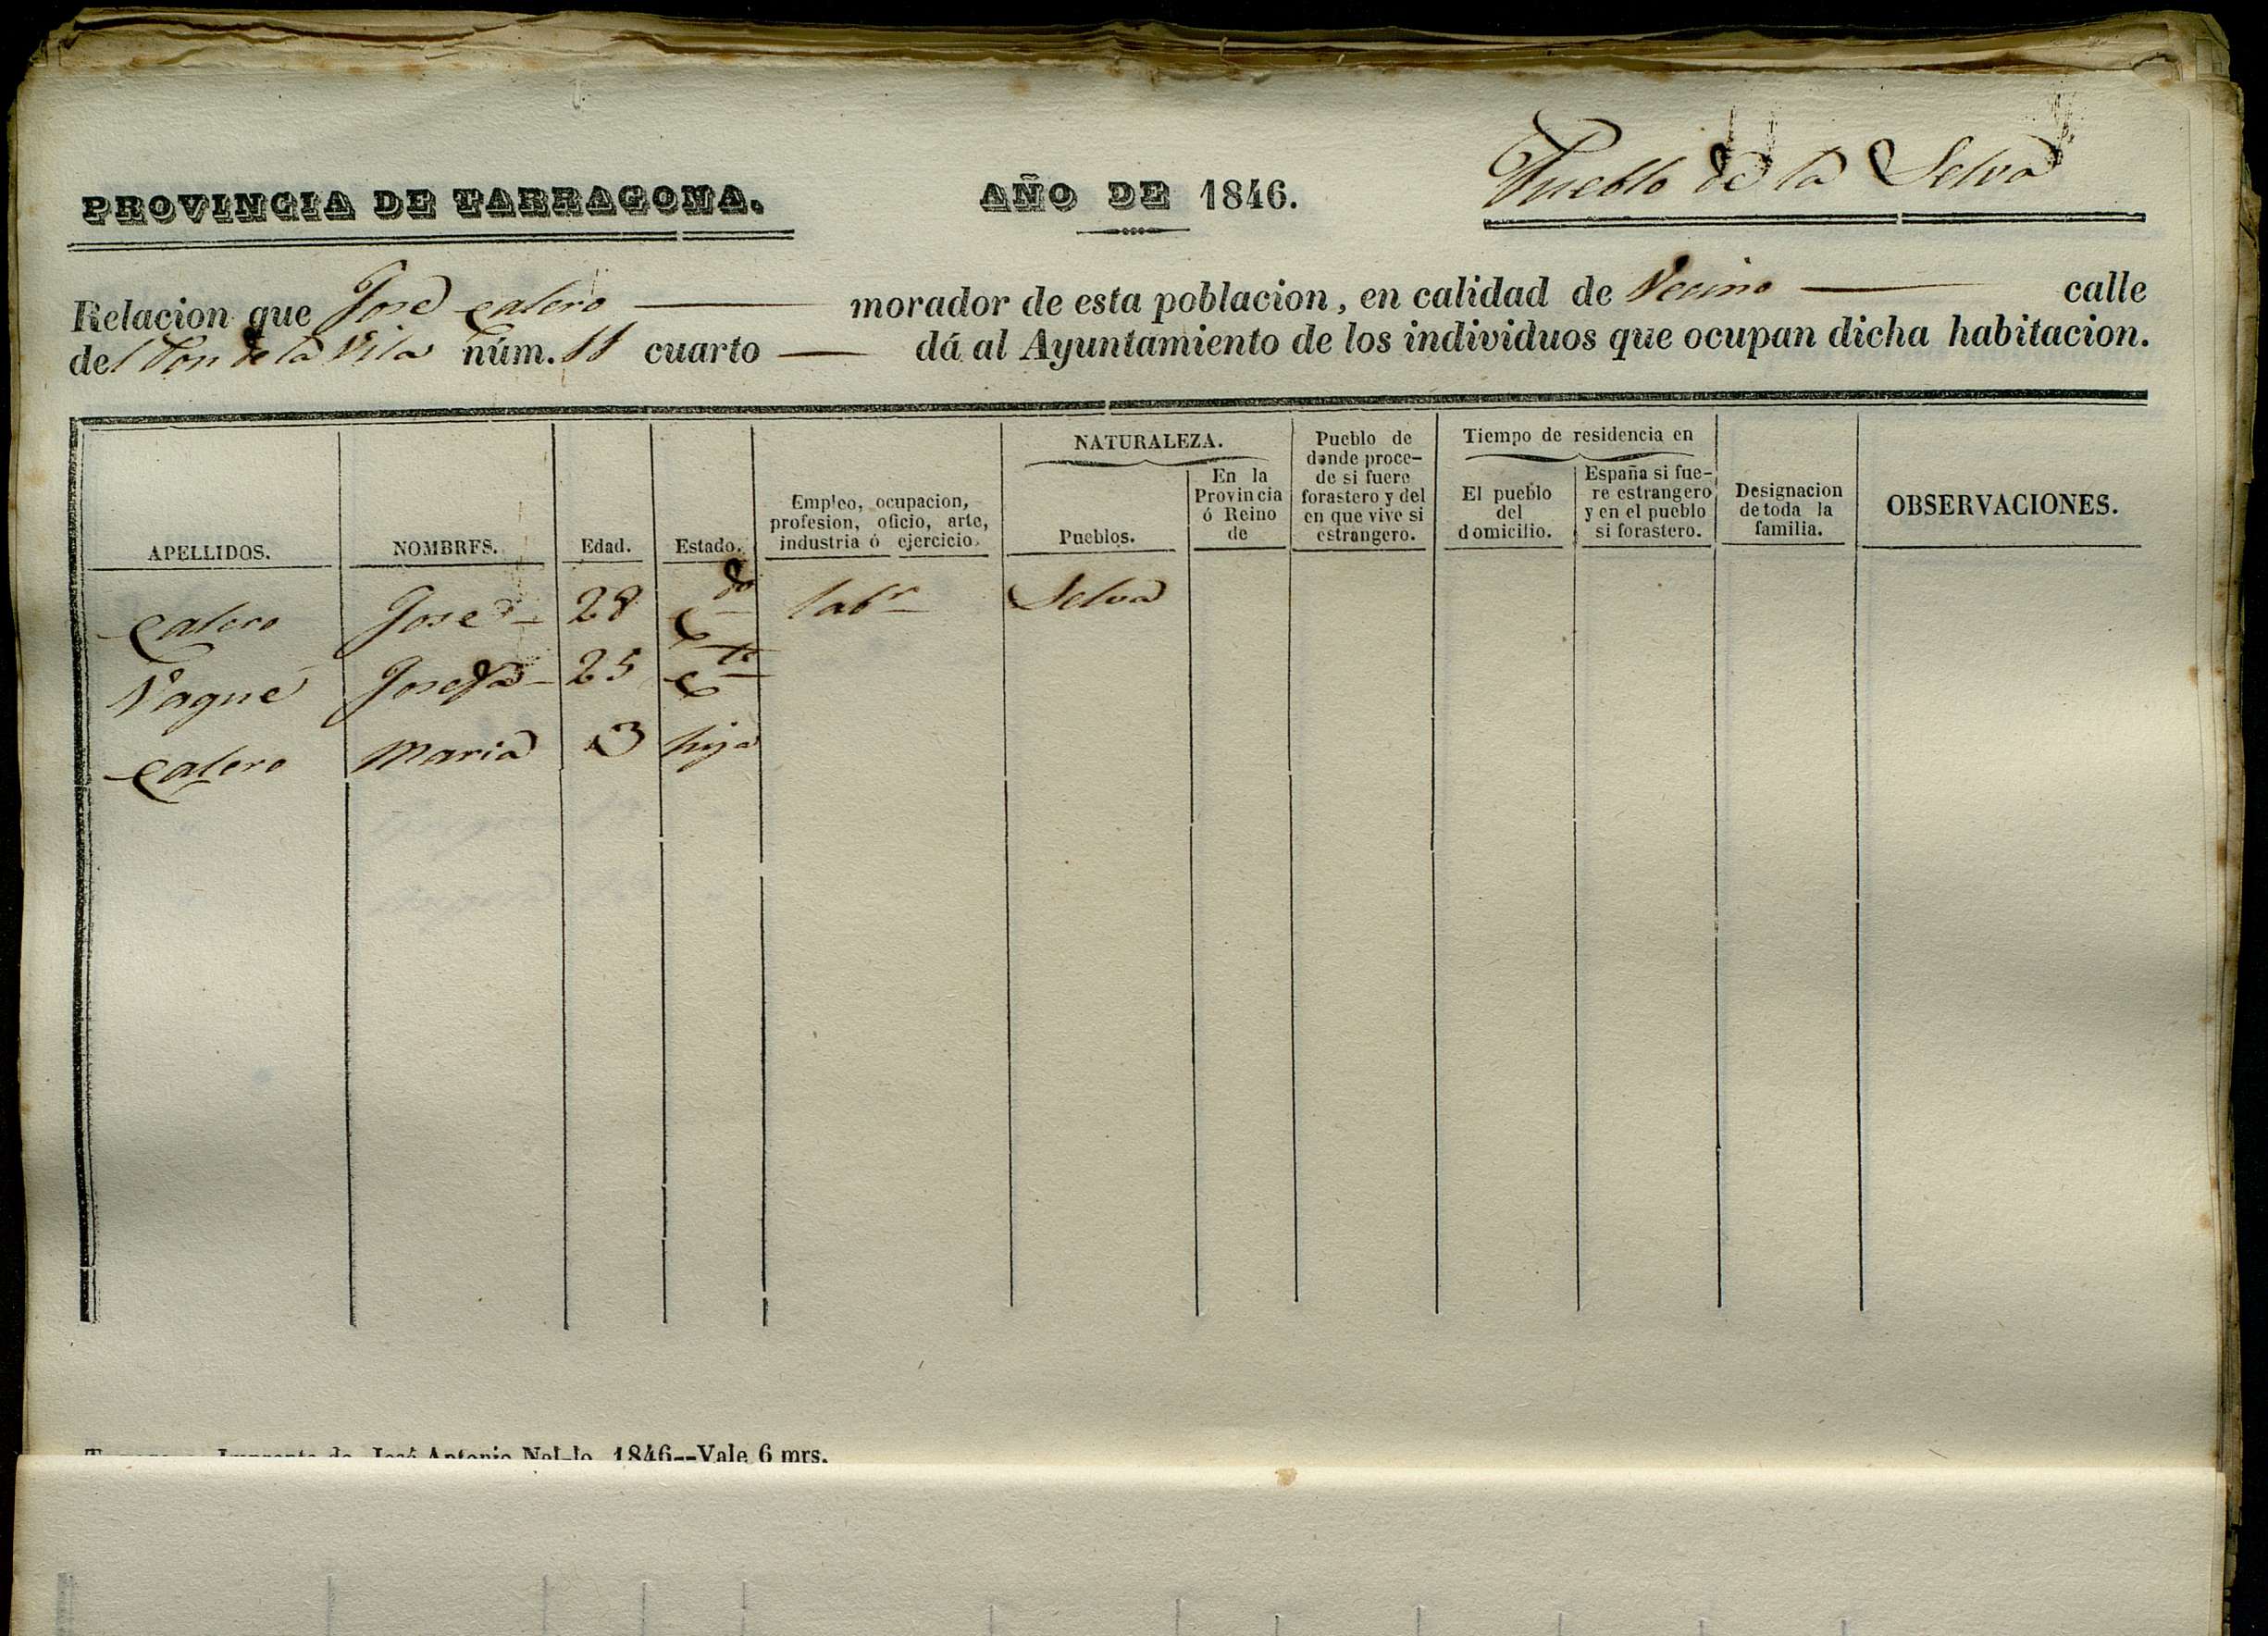 PROVINCIA DE TARRAGONA.
AÑO DE 1846.
Pueblo de la Selva
Relacion que José calero morador de esta poblacion, en calidad de Vecino calle
del Fon de la Vila núm. 11 cuarto — dá al Ayuntamiento de los individuos que ocupan dicha habitacion.
APELLIDOS.
NOMBRES.
Edad.
Estado.
Empleo, ocupacion,
profesion, oficio, arte,
industria ó ejercicio.
NATURALEZA.
Pueblos.
En la
Provincia
ó Reino
de
Pueblo de
donde proce-
de si fuere
forastero y del
en que vive si
estrangero.
Tiempo de residencia en
El pueblo
del
domicilio.
España si fue-
re estrangero
y en el pueblo
si forastero.
Designacion
de toda la
familia.
OBSERVACIONES.
calero José 28 Cdo labr Selva
Vagué Josefa 25 Cta
calero Maria 3 hija
Imprenta de José Antonio Nel-lo 1846--Vale 6 mrs.